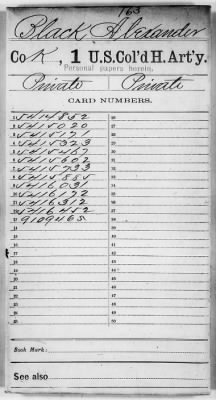 163
Black Alexander
Co K, 1 U.S.Col'd H. Art'y.
Personal papers herein.
Private Private
CARD NUMBERS.
1 5414852 26
2 5415020 27
3 5415171 28
4 5415323 29
5 5415467 30
6 5415602 31
7 5415733 32
8 5415885 33
9 5416031 34
10 5416172 35
11 5416312 36
12 5416452 37
13 9109465 38
14 39
15 40
16 41
17 42
18 43
19 44
20 45
21 46
22 47
23 48
24 49
25 50
Book Mark:
See also